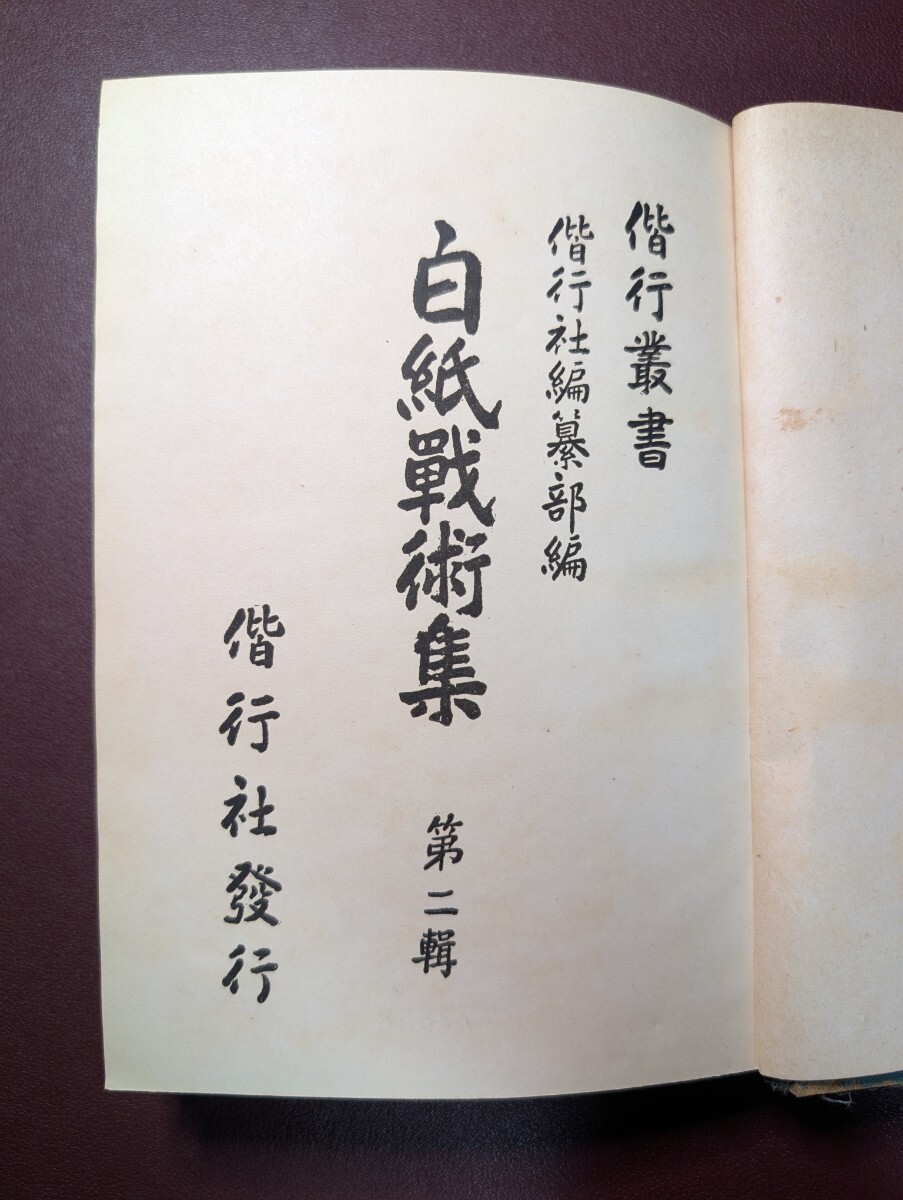 偕行叢書
偕行社編纂部編
白紙戰術集 第二輯
偕行社發行